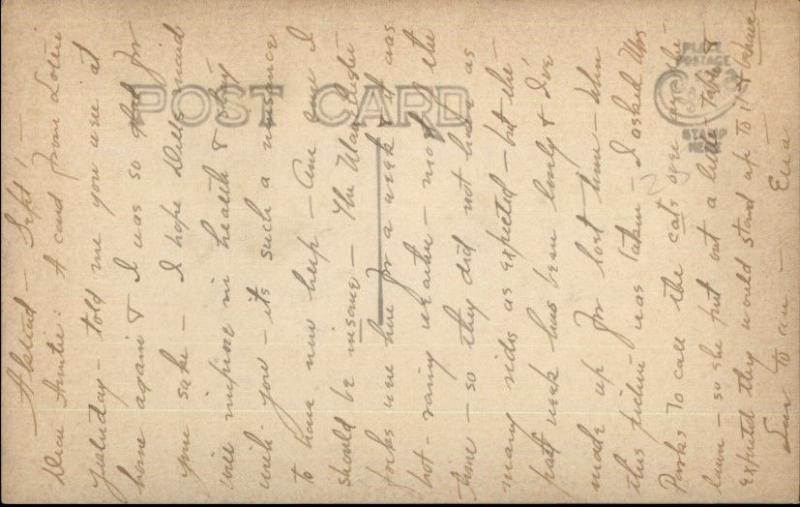 POST CARD
PLACE
POSTAGE
STAMP
HERE
Alstead – Sept 1 –
Dear Auntie: A card from Lottie
yesterday – told me you were at
home again & I was so glad for
your sake – I hope Dell's maid
will improve in health & stay
with you – its such a nuisance
to have new help – Am sure I
should be insane – The Manchester
folks were here for a week & it was
hot – rainy weather – most of the
time – so they did not have as
many rides as expected – but the
past week has been lovely & I've
made up for lost time – When
this picture was taken – I asked Mrs
Parks to call the cats over on the
lawn – so she put out a little table &
expected they would stand up to it & behave
Love to all – Eva –